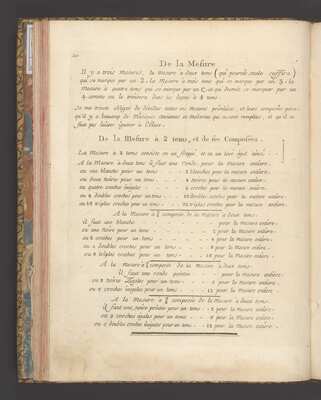 De la Mesure
Il y a trois Mesures, la Mesure a deux tems (qui pouroit seule suffire)
qui se marque par un 2. la Mesure a trois tems qui se marque par un 3. la
Mesure a quatre tems qui se marque par un C. et qui devroit se marquer par un
4. comme on la trouvera dans les leçons à 4 tems.
Je me trouve obligé de détailler toutes ces Mesures
qu'il y a beaucoup de Musiques Anciennes et Modernes qui en sont remplies, et qu'il ne
faut pas laisser ignorer a l'Eleve.
De la Mesure à 2 tems, et de ses Composées.
La Mesure à 2 tems consiste en un frappé, et en un levé
A la Mesure à deux tems il faut une ronde pour la Mesure entiere.
ou une blanche pour un tems 2 blanches pour la mesure entiere.
ou deux noires pour un tems 4 noires pour la mesure entiere.
ou quatre croches pour un tems 8 croches pour la mesure entiere.
ou 8 doubles croches pour un tems 16 doubles croches pour la mesure entiere.
ou 16 triples croches pour un tems 32 triples croches pour la mesure entiere.
A la Mesure à composée de la Mesure à deux tems.
il faut une blanche pour la Mesure entiere.
ou une Noire pour un tems 2 pour la mesure entiere.
ou 2 croches pour un tems 4 pour la mesure entiere.
ou 4 doubles croches pour un tems 8 pour la Mesure entiere.
ou 8 triples croches pour un tems 16 pour la Mesure entiere.
A la Mesure à composée de la Mesure à deux tems.
il faut une ronde pointée pour la Mesure entiere.
ou 3 noires égales pour un tems 6 pour la Mesure entiere.
ou 6 croches inégales pour un tems 12 pour la Mesure entiere.
A la Mesure à composée de la Mesure à deux tems.
il faut une noire pointée pour un tems 2 pour la Mesure entiere.
ou 3 croches égales pour un tems 6 pour la Mesure entiere.
ou 6 doubles croches inégales pour un tems 12 pour la Mesure entiere.